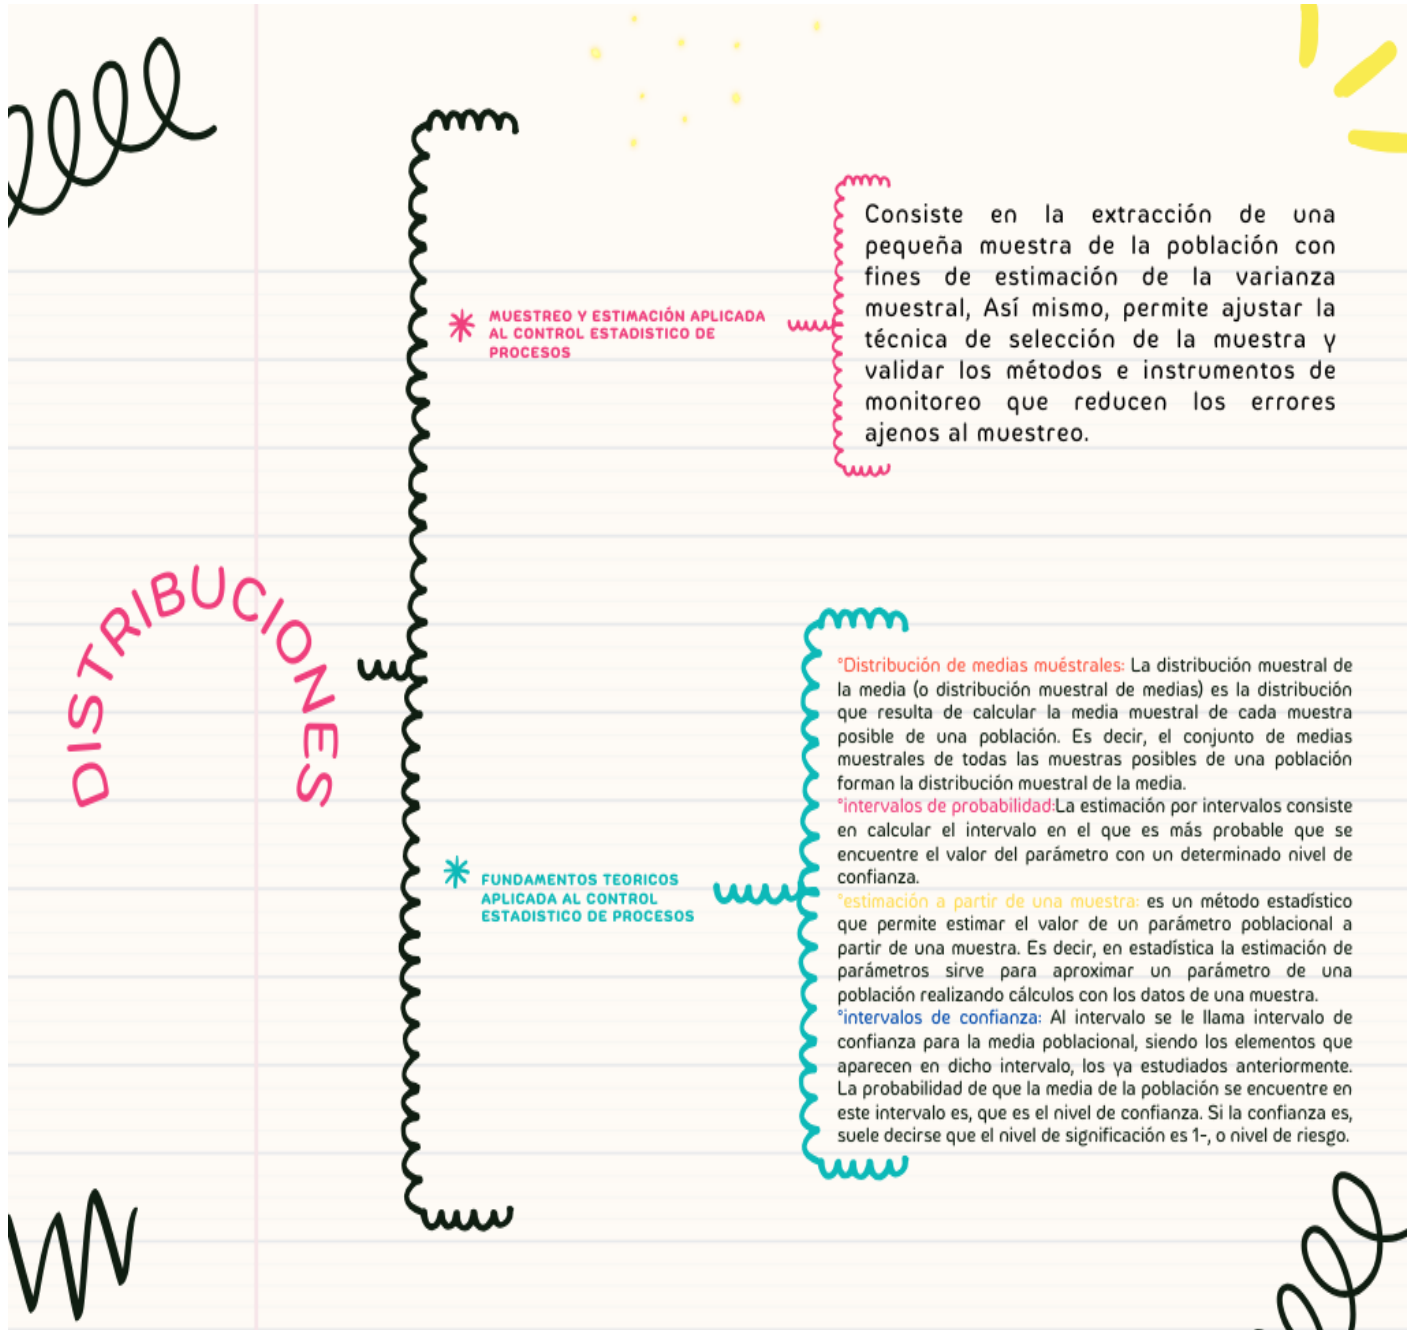 DISTRIBUCIONES
MUESTREO Y ESTIMACIÓN APLICADA
AL CONTROL ESTADISTICO DE
PROCESOS
Consiste en la extracción de una
pequeña muestra de la población con
fines de estimación de la varianza
muestral, Así mismo, permite ajustar la
técnica de selección de la muestra y
validar los métodos e instrumentos de
monitoreo que reducen los errores
ajenos al muestreo.
FUNDAMENTOS TEORICOS
APLICADA AL CONTROL
ESTADISTICO DE PROCESOS
°Distribución de medias muéstrales: La distribución muestral de
la media (o distribución muestral de medias) es la distribución
que resulta de calcular la media muestral de cada muestra
posible de una población. Es decir, el conjunto de medias
muestrales de todas las muestras posibles de una población
forman la distribución muestral de la media.
°intervalos de probabilidad:La estimación por intervalos consiste
en calcular el intervalo en el que es más probable que se
encuentre el valor del parámetro con un determinado nivel de
confianza.
°estimación a partir de una muestra: es un método estadístico
que permite estimar el valor de un parámetro poblacional a
partir de una muestra. Es decir, en estadística la estimación de
parámetros sirve para aproximar un parámetro de una
población realizando cálculos con los datos de una muestra.
°intervalos de confianza: Al intervalo se le llama intervalo de
confianza para la media poblacional, siendo los elementos que
aparecen en dicho intervalo, los ya estudiados anteriormente.
La probabilidad de que la media de la población se encuentre en
este intervalo es, que es el nivel de confianza. Si la confianza es,
suele decirse que el nivel de significación es 1-, o nivel de riesgo.